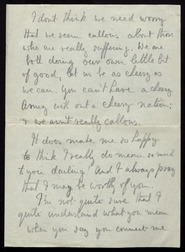 I dont think we need worry
that we seem callous about those
who are really suffering. We are
both doing our own little bit
of good, let us be as cheery as
we can. You can't have a cheery
Army with out a cheery nation;
& we aren't really callous.
It does make me so happy
to think I really do mean so much
to you darling And I always pray
that I may be worthy of you.
I'm not quite sure that I
quite understand what you mean
when you say you connect me